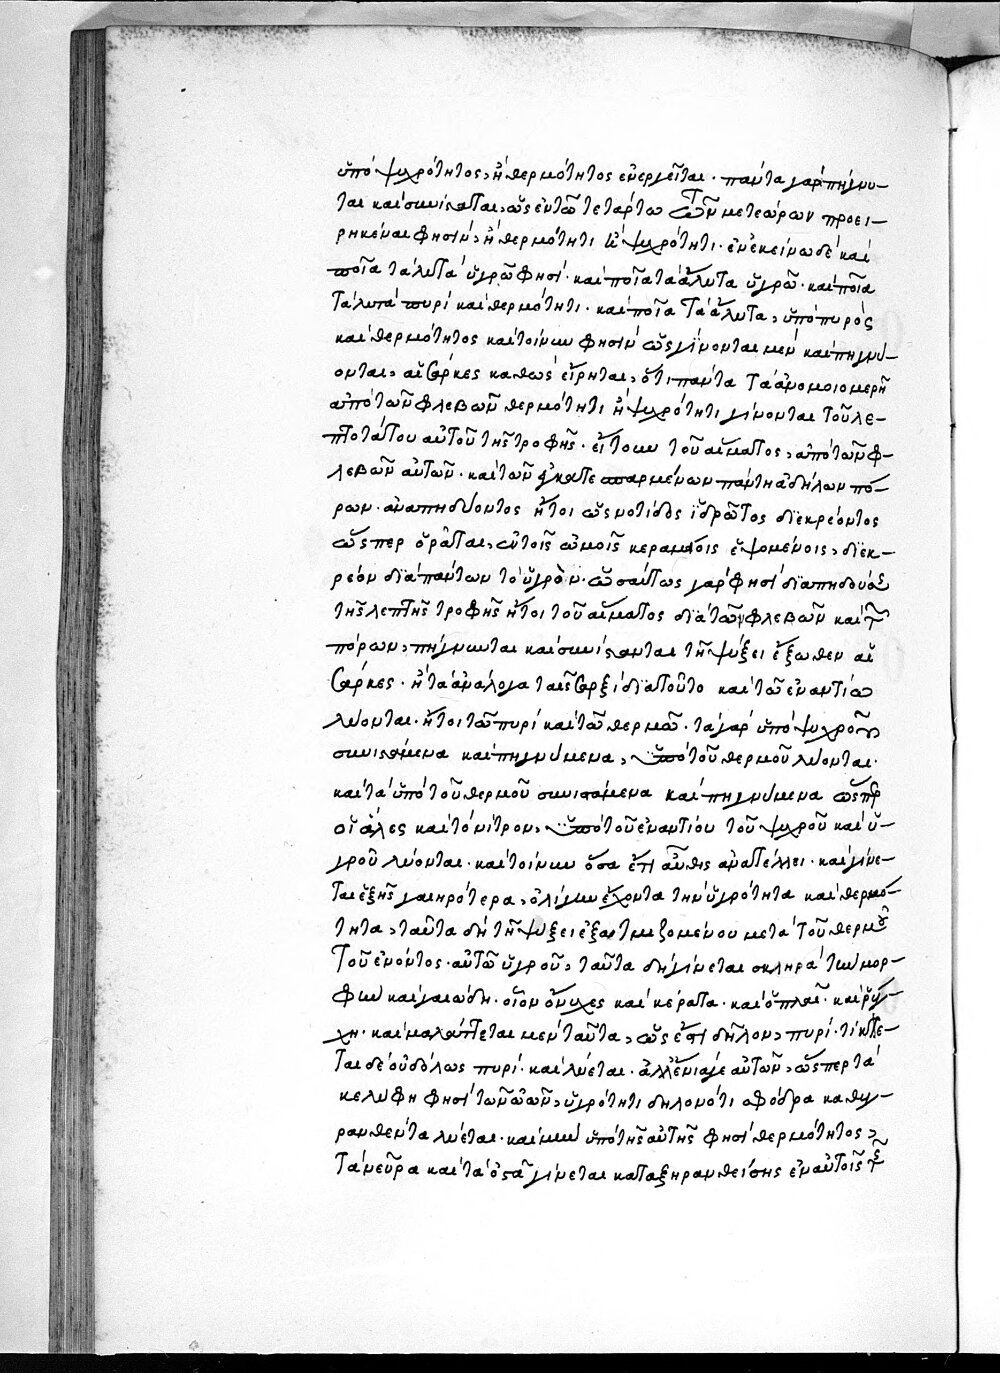 ὑπὸ ψυχρότητος, ἢ θερμότητος ἐνεργεῖται · πάντα γὰρ πήγνυ-
ται καὶ συνίσταται, ὡς ἐν τῷ τετάρτῳ τῶν μετεώρων προει-
ρηκέναι φησὶν, ἢ θερμότητι ἢ ψυχρότητι · ἐν ἐκείνω δὲ καὶ
ποῖα τὰ λυτὰ ὑγρῷ φησί · καὶ ποῖα τὰ ἄλυτα ὑγρῷ · καὶ ποῖα
τὰ λυτὰ πυρὶ καὶ θερμότητι · καὶ ποῖα τὰ ἄλυτα, ὑπὸ πυρὸς
καὶ θερμότητος καὶ τοίνυν φησὶν ὡς γίνονται μὲν καὶ πηγνύ-
ονται, αἱ σάρκες καθὼς εἴρηται, ὅτι πάντα τὰ ἀνομοιομερῆ
ἀπὸ τῶν φλεβῶν θερμότητι ἢ ψυχρότητι γίνονται τοῦ λε-
πτοτάτου αὐτοῦ τῆς τροφῆς · εἴτουν τοῦ αἵματος, ἀπὸ τῶν φ-
λεβῶν αὐτῶν · καὶ τῶν πάντη ἀδήλων πό-
ρων · ἀναπηδύοντος ἤτοι ὡς νοτίδος ἱδρῶτος διεκρέοντος
ὥσπερ ὁρᾶται, ἐν τοῖς ὠμοῖς κεραμίοις ἑψομένοις, διεκ-
ρέον διὰ πάντων τὸ ὑγρὸν · ὡσαύτως γάρ φησι διαπηδύοντος
τῆς λεπτῆς τροφῆς ἤτοι τοῦ αἵματος διὰ τῶν φλεβῶν καὶ τῶν
πόρων, πήγνυνται καὶ συνίστανται τῇ ψύξει ἔξωθεν αἱ
σάρκες · ἢ τὰ ἀνάλογα ταῖς σαρξὶ διὰ τοῦτο καὶ τῷ ἐναντίω
λύονται · ἤτοι τῷ πυρὶ καὶ τῷ θερμῷ · τὰ γὰρ ὑπὸ ψυχροῦ
συνιστάμενα καὶ πηγνύμενα, ὑπὸ τοῦ θερμοῦ λύονται ·
καὶ τὰ ὑπὸ τοῦ θερμοῦ συνιστάμενα καὶ πηγνύμενα ὥσπερ
οἱ ἅλες καὶ τὸ νίτρον, ὑπὸ τοῦ ἐναντίου τοῦ ψυχροῦ καὶ ὑ-
γροῦ λύονται · καὶ τοίνυν ὅσα ἔτι αὖθις ἀνατέλλει · καὶ γίνε-
ται ἑξῆς γαιηρότερα, ὀλίγην ἔχοντα τὴν ὑγρότητα καὶ θερμό-
τητα, ταῦτα δὴ τῇ ψύξει ἐξατμιζομένου μετὰ τοῦ θερμοῦ
τοῦ ἐνόντος · αὐτῷ ὑγροῦ, ταῦτα δὴ γίνεται σκληρὰ τὴν μορ-
φὴν καὶ γαιώδη · οἷον ὄνυχες καὶ κέρατα · καὶ ὁπλαὶ · καὶ ῥύγ-
χη · καὶ μαλάττεται μὲν ταῦτα, ὡς ἔστι δῆλον, πυρί · τήκε-
ται δὲ οὐδόλως πυρί · καὶ λύεται · ἀλλ' ἔνια γε αὐτῶν, ὥσπερ τὰ
κελύφη φησὶ τῶν ὠῶν, ὑγρότητι δηλονότι σφόδρα καθυγ-
ρανθέντα λύεται · καὶ μὴν ὑπὸ τῆς αὐτῆς φησι θερμότητος,
τὰ νεῦρα καὶ τὰ ὀστᾶ γίνεται καταξηρανθείσης ἐν αὐτοῖς τῆς